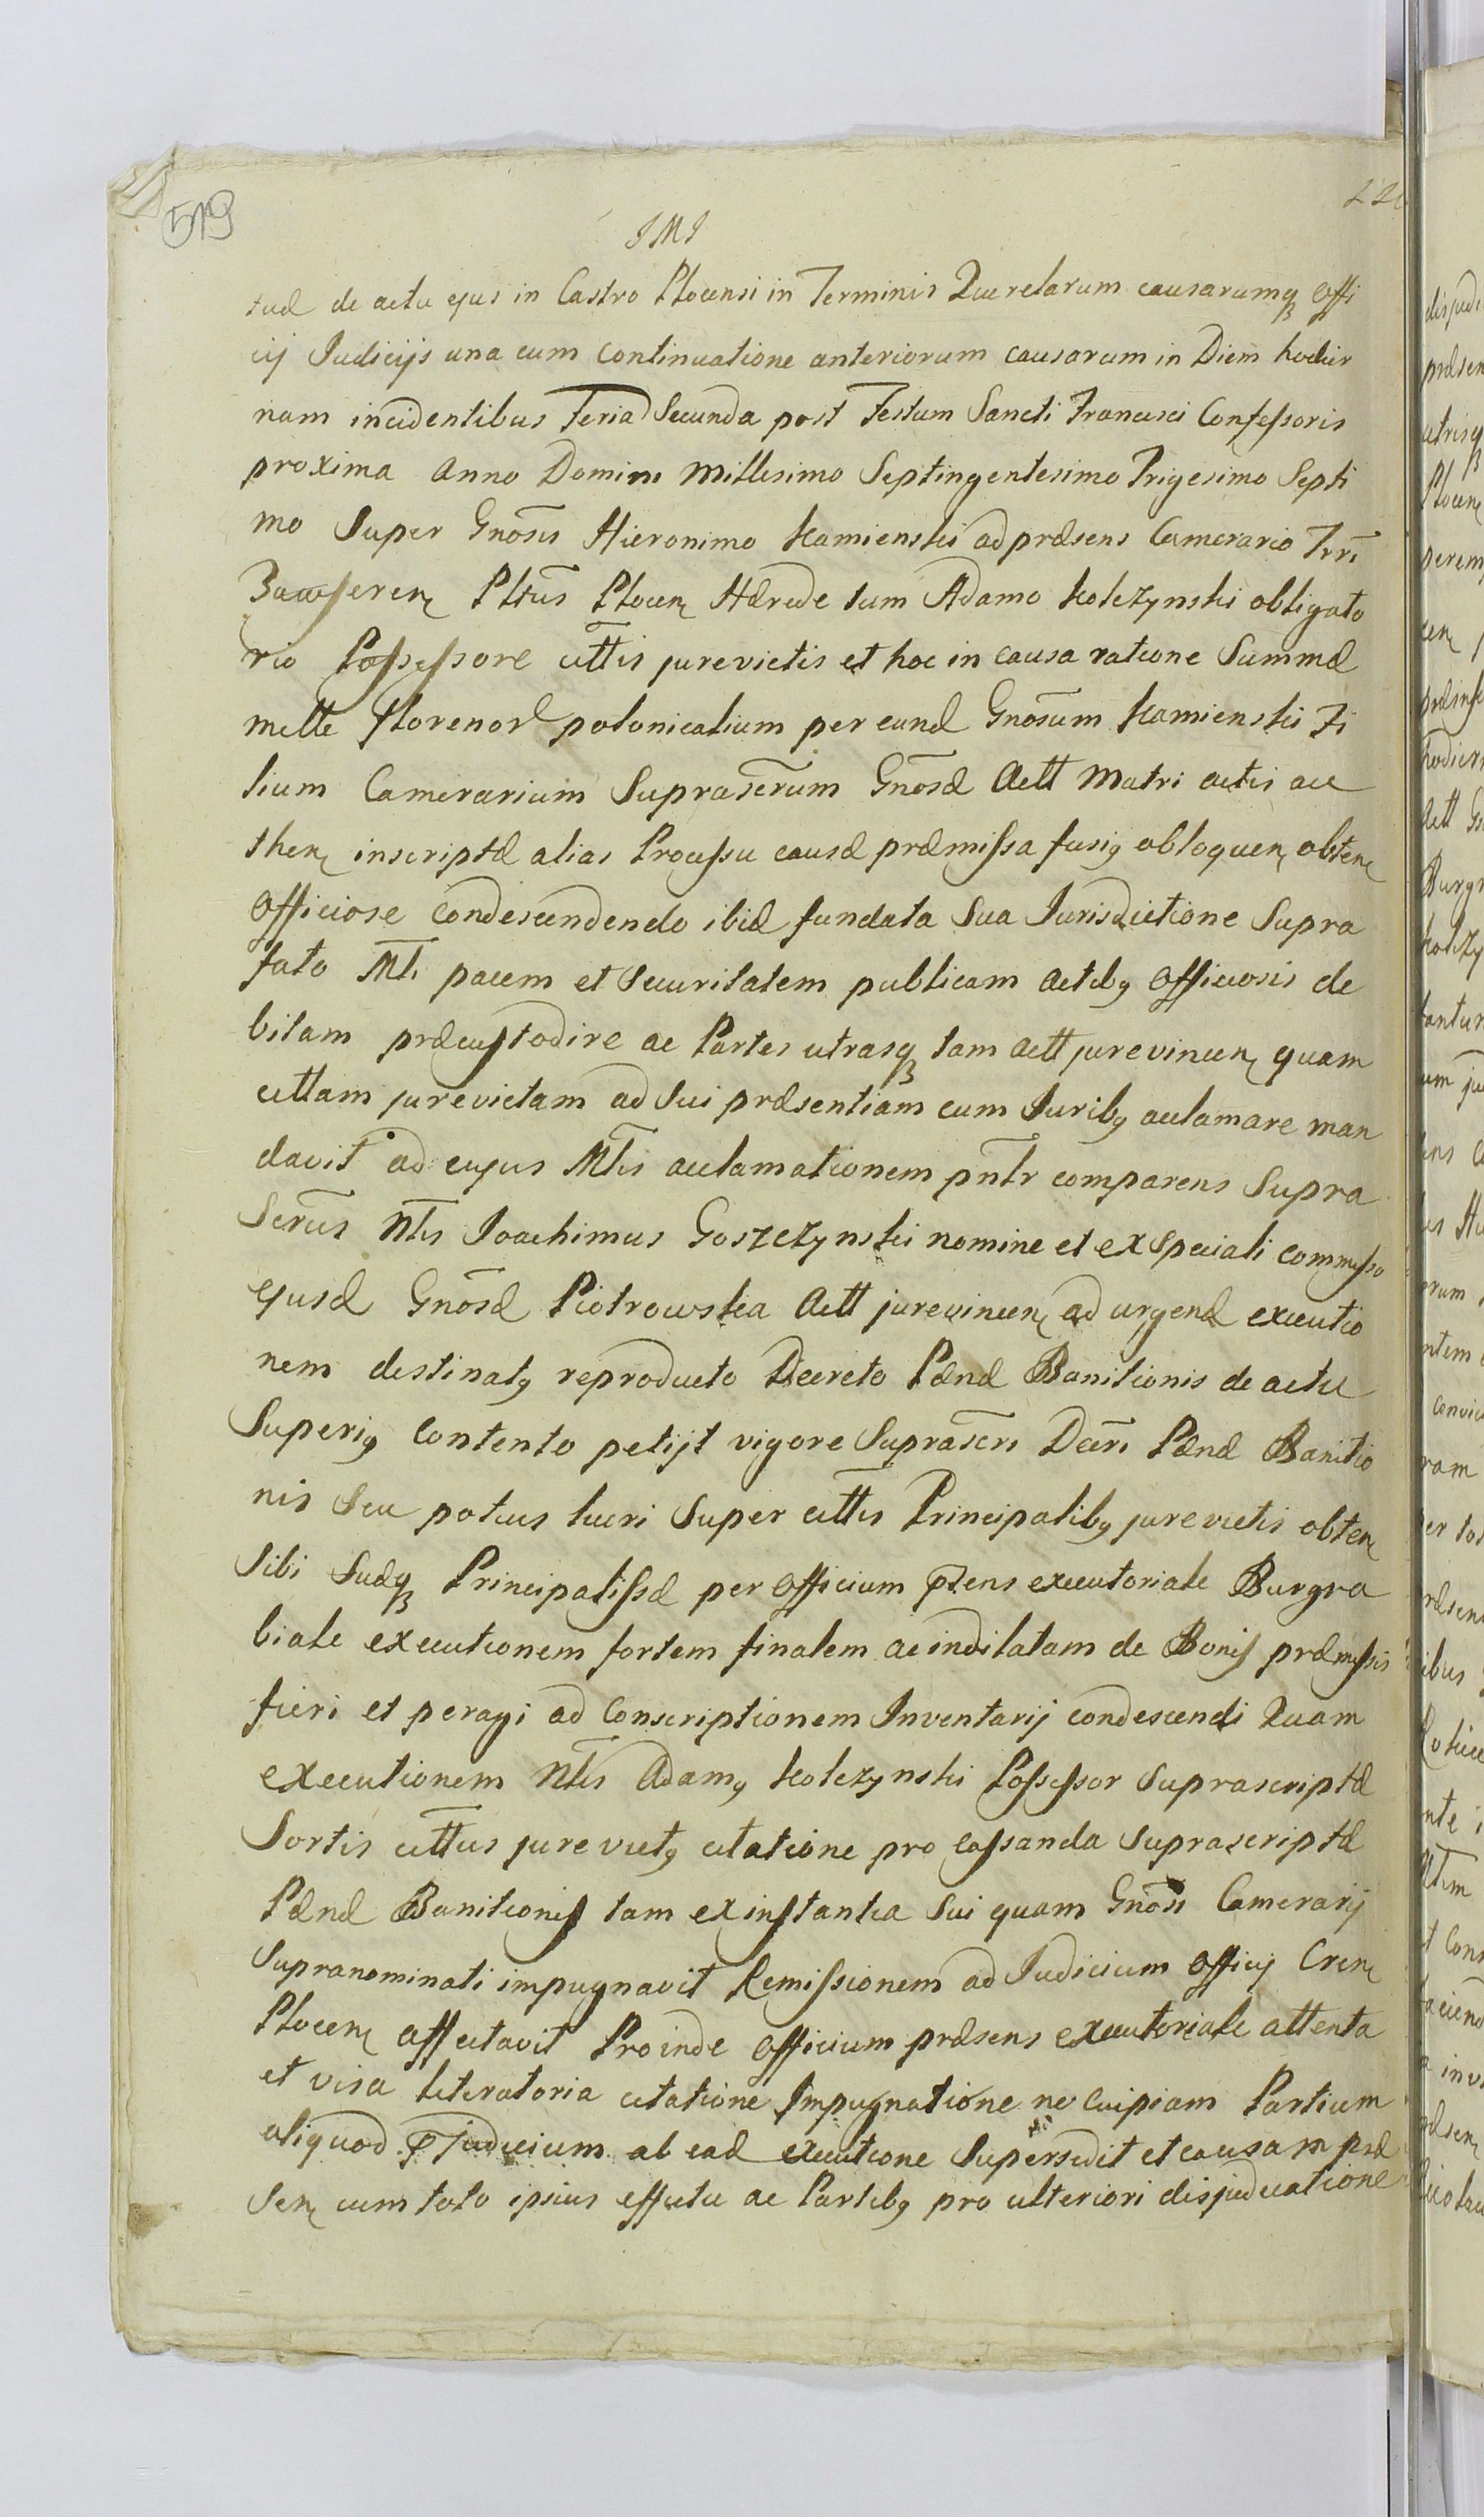 519
JMJ
tuæ de actu ejus in Castro Plocensi in Terminis Querelarum causarumq Offi
cij Judicijs una cum Continuatione anteriorum causarum in Diem hodier
nam incidentibus Feria Secunda post Festum Sancti Francisci Confessoris
proxima Anno Domini Millesimo Septingentesimo Trigesimo Septi
mo Super Gnosis Hieronimo Kamienski ad præsens Camerario Trri
Pltus Plocen Hærede tum Adamo Kolczynski obligato
rio Possessore cittis jurevictis et hoc in causa ratione Summæ
mille florenor polonicalium per eund Gnosum Kamienski Fi
lium Camerarium Suprascrum Gnosæ Actt Matri actis au
then inscriptæ alias Processu causæ præmissa fusig obloquen obten
Officiose Condescendendo ibid fundata Sua Jurisdictione Supra
fato Mti pacem et Securitatem publicam actibg Officiosis de
bitam præcustodire ac Partes utrasq tam actt jurevincen quam
cittam jurevictam ad Sui præsentiam cum Juribg acclamare man
davit ad cujus Mtis acclamationem pntr comparens Supra
Scrus Ntis Joachimus Goszczynski nomine et ex Speciali commisso
ejusd Gnosæ Piotrowska Actt jurevincen ad urgend executio
nem destinatg reproducto Decreto Pænæ Banitionis de actu
Superig Contento petijt vigore Suprascri Decri Pænæ Banitio
nis Seu potius lucri Super cittis Principalibg jurevictis obten
Sibi Suæq Principalissæ per Officium pzens executoriale Burgra
biale executionem fortem finalem ac indilatam de Bonis præmissis
fieri et peragi ad Conscriptionem Inventarij condescendi Quam
executionem Ntis Adamg Kolczynski Possessor Suprascriptæ
Sortis cittus jure victg citatione pro cassanda Suprascriptæ
Pænæ Banitionis tam ex instantia Sui quam Gnosi Camerarij
Supranominati impugnavit Remissionem ad Judicium Officij Cren
Plocen affectavit Proinde Officium præsens executoriale attenta
et visa literatoria citatione Impugnatione ne cuipiam Partium
aliquod pjudicium ab ead executione Supersedit et causam præ
sen cum toto ipsius effectu ac Partibg pro ulteriori disjudicatione